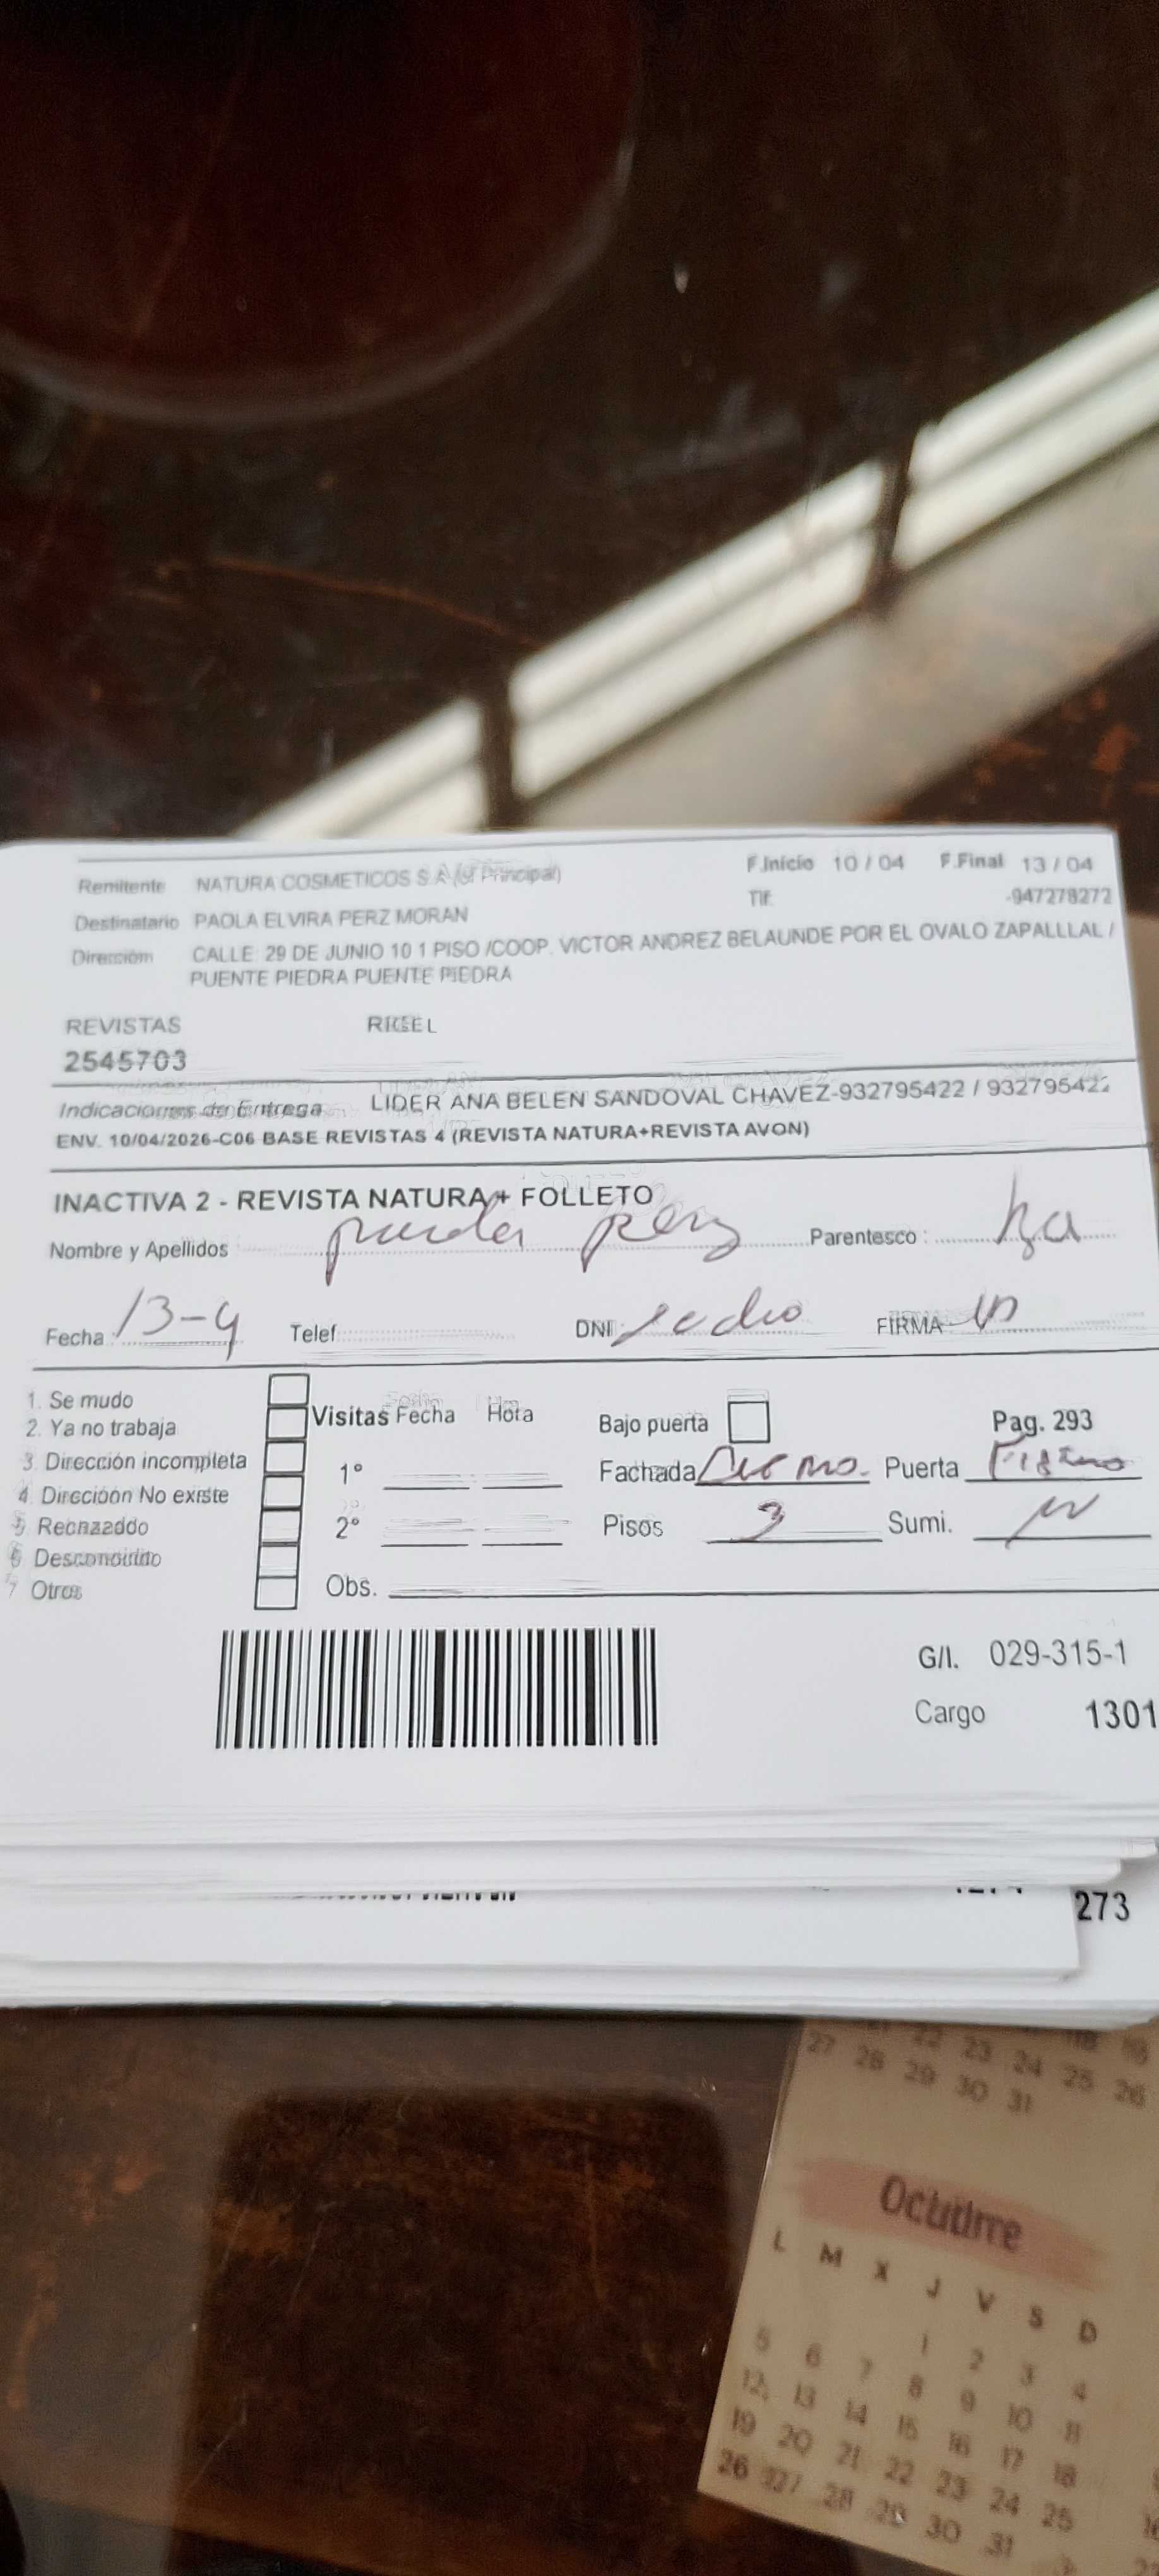 F.Inicio 10 / 04 F.Final 13 / 04
Remitente NATURA COSMETICOS S.A (sf Principal)
Tlf. -947278272
Destinatario PAOLA ELVIRA PERZ MORAN
Dirección CALLE 29 DE JUNIO 10 1 PISO /COOP. VICTOR ANDREZ BELAUNDE POR EL OVALO ZAPALLLAL /
PUENTE PIEDRA PUENTE PIEDRA
REVISTAS
2545703
Indicaciones de Entrega LIDER ANA BELEN SANDOVAL CHAVEZ-932795422 / 932795422
ENV. 10/04/2026-C06 BASE REVISTAS 4 (REVISTA NATURA+REVISTA AVON)
INACTIVA 2 - REVISTA NATURA + FOLLETO
Nombre y Apellidos perz Parentesco :
Fecha : 13-4 Telef. DNI FIRMA
1. Se mudo
2. Ya no trabaja
3. Dirección incompleta
4 Dirección No existe
5 Rechazado
6 Desconocido
7 Otros
Visitas Fecha Hora
1°
2°
Obs.
Bajo puerta Pag. 293
Fachada Puerta
Pisos 3 Sumi.
G/I. 029-315-1
Cargo 1301
273
22 23 24 25 26
27 28 29 30 31
Octubre
L M X J V S D
1 2 3 4
5 6 7 8 9 10 11
12 13 14 15 16 17 18
19 20 21 22 23 24 25
26 27 28 29 30 31